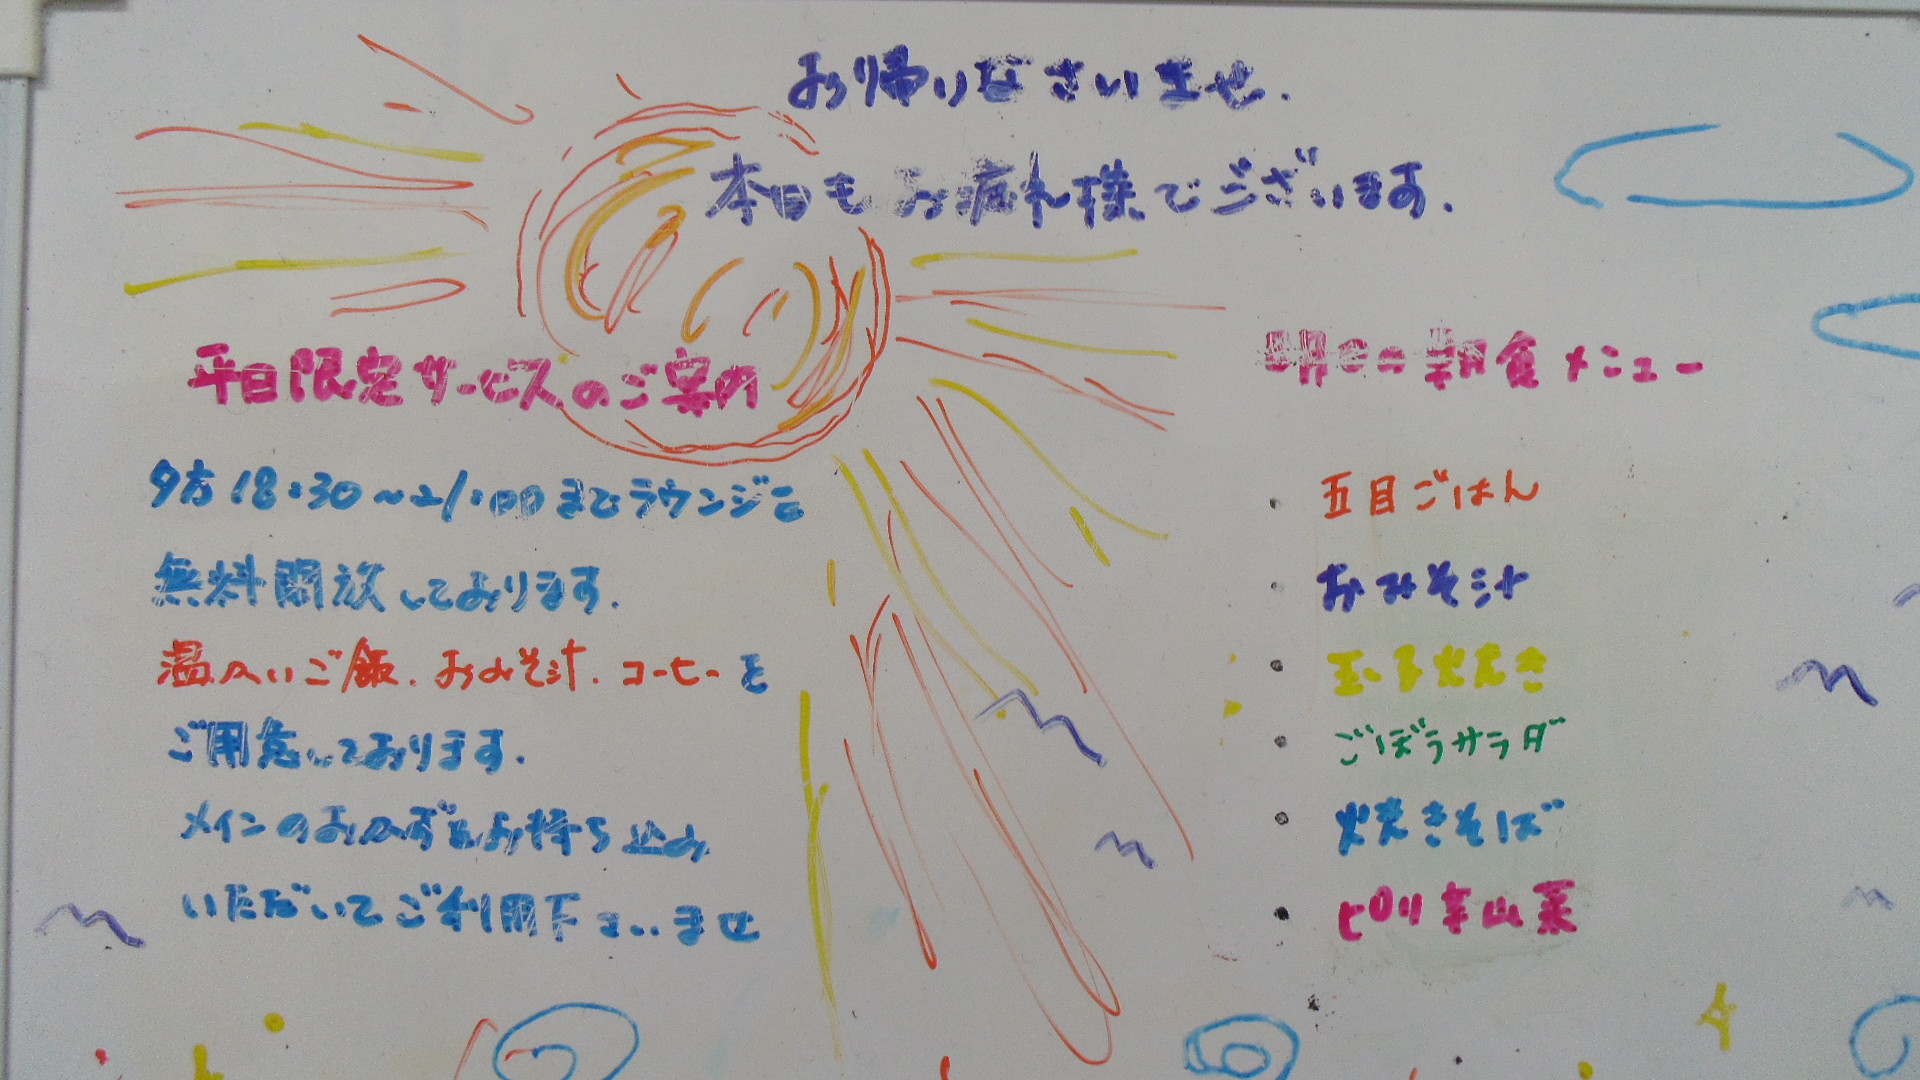 お帰りなさいませ.
本日もお疲れ様でございます.
平日限定サービスのご案内
夕方18:30~21:00までラウンジを
無料開放しております.
温かいご飯.おみそ汁.コーヒーを
ご用意しております.
メインのおかずをお持ち込み
いただいてご利用下さいませ
明日の朝食メニュー
・五目ごはん
・おみそ汁
・玉子焼き
・ごぼうサラダ
・焼きそば
・ピリ辛山菜